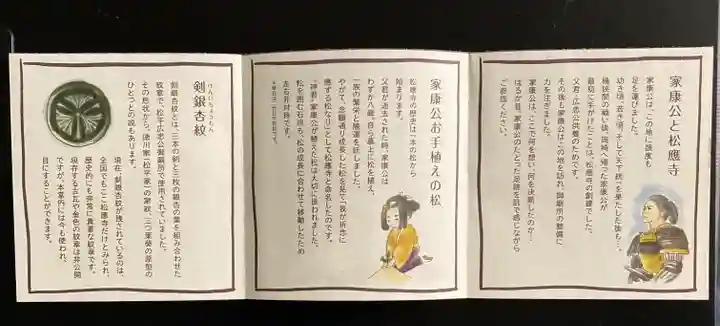 家康公と松應寺
家康公は、この地に幾度も
足を運びました。
幼き頃、若き頃、そして天下統一を果たした後も…。
桶狭間の戦い後、岡崎へ帰った家康公が
最初に手がけたことは、松應寺の創建でした。
父君・広忠公供養のためです。
その後も家康公はこの地を訪れ、御廟所の整備に
力を注ぎました。
家康公は、ここで何を想い、何を決断したのか…
はるか昔、家康公のたどった足跡を肌で感じながら
ご参拝ください。
家康公お手植えの松
松應寺の歴史は一本の松から
始まります。
父君が逝去された時、家康公は
わずか八歳。自ら墓上に松を植え、
一族の繁栄と隆運を託しました。
やがて、念願通り成長した松を見て「我が祈念に
應ずる松なり」として松應寺と命名したのです。
「神君」家康公が植えた松は大切に扱われました。
松を囲む石塀も、松の成長に合わせて移動したため
左右非対称です。
剣銀杏紋
けんいちょうもん
剣銀杏紋とは、三本の剣と三枚の銀杏の葉を組み合わせた
紋章で、松平広忠公御廟所で使用されていました。
その形状から、徳川家（松平家）の家紋、三つ葉葵の原型の
ひとつとの説もあります。
現在、剣銀杏紋が残されているのは、
全国でもここ松應寺だけとみられ、
歴史的にも非常に貴重な紋章です。
現存する古瓦や金色の紋章は非公開
ですが、本堂内には今も使われ、
目にすることができます。